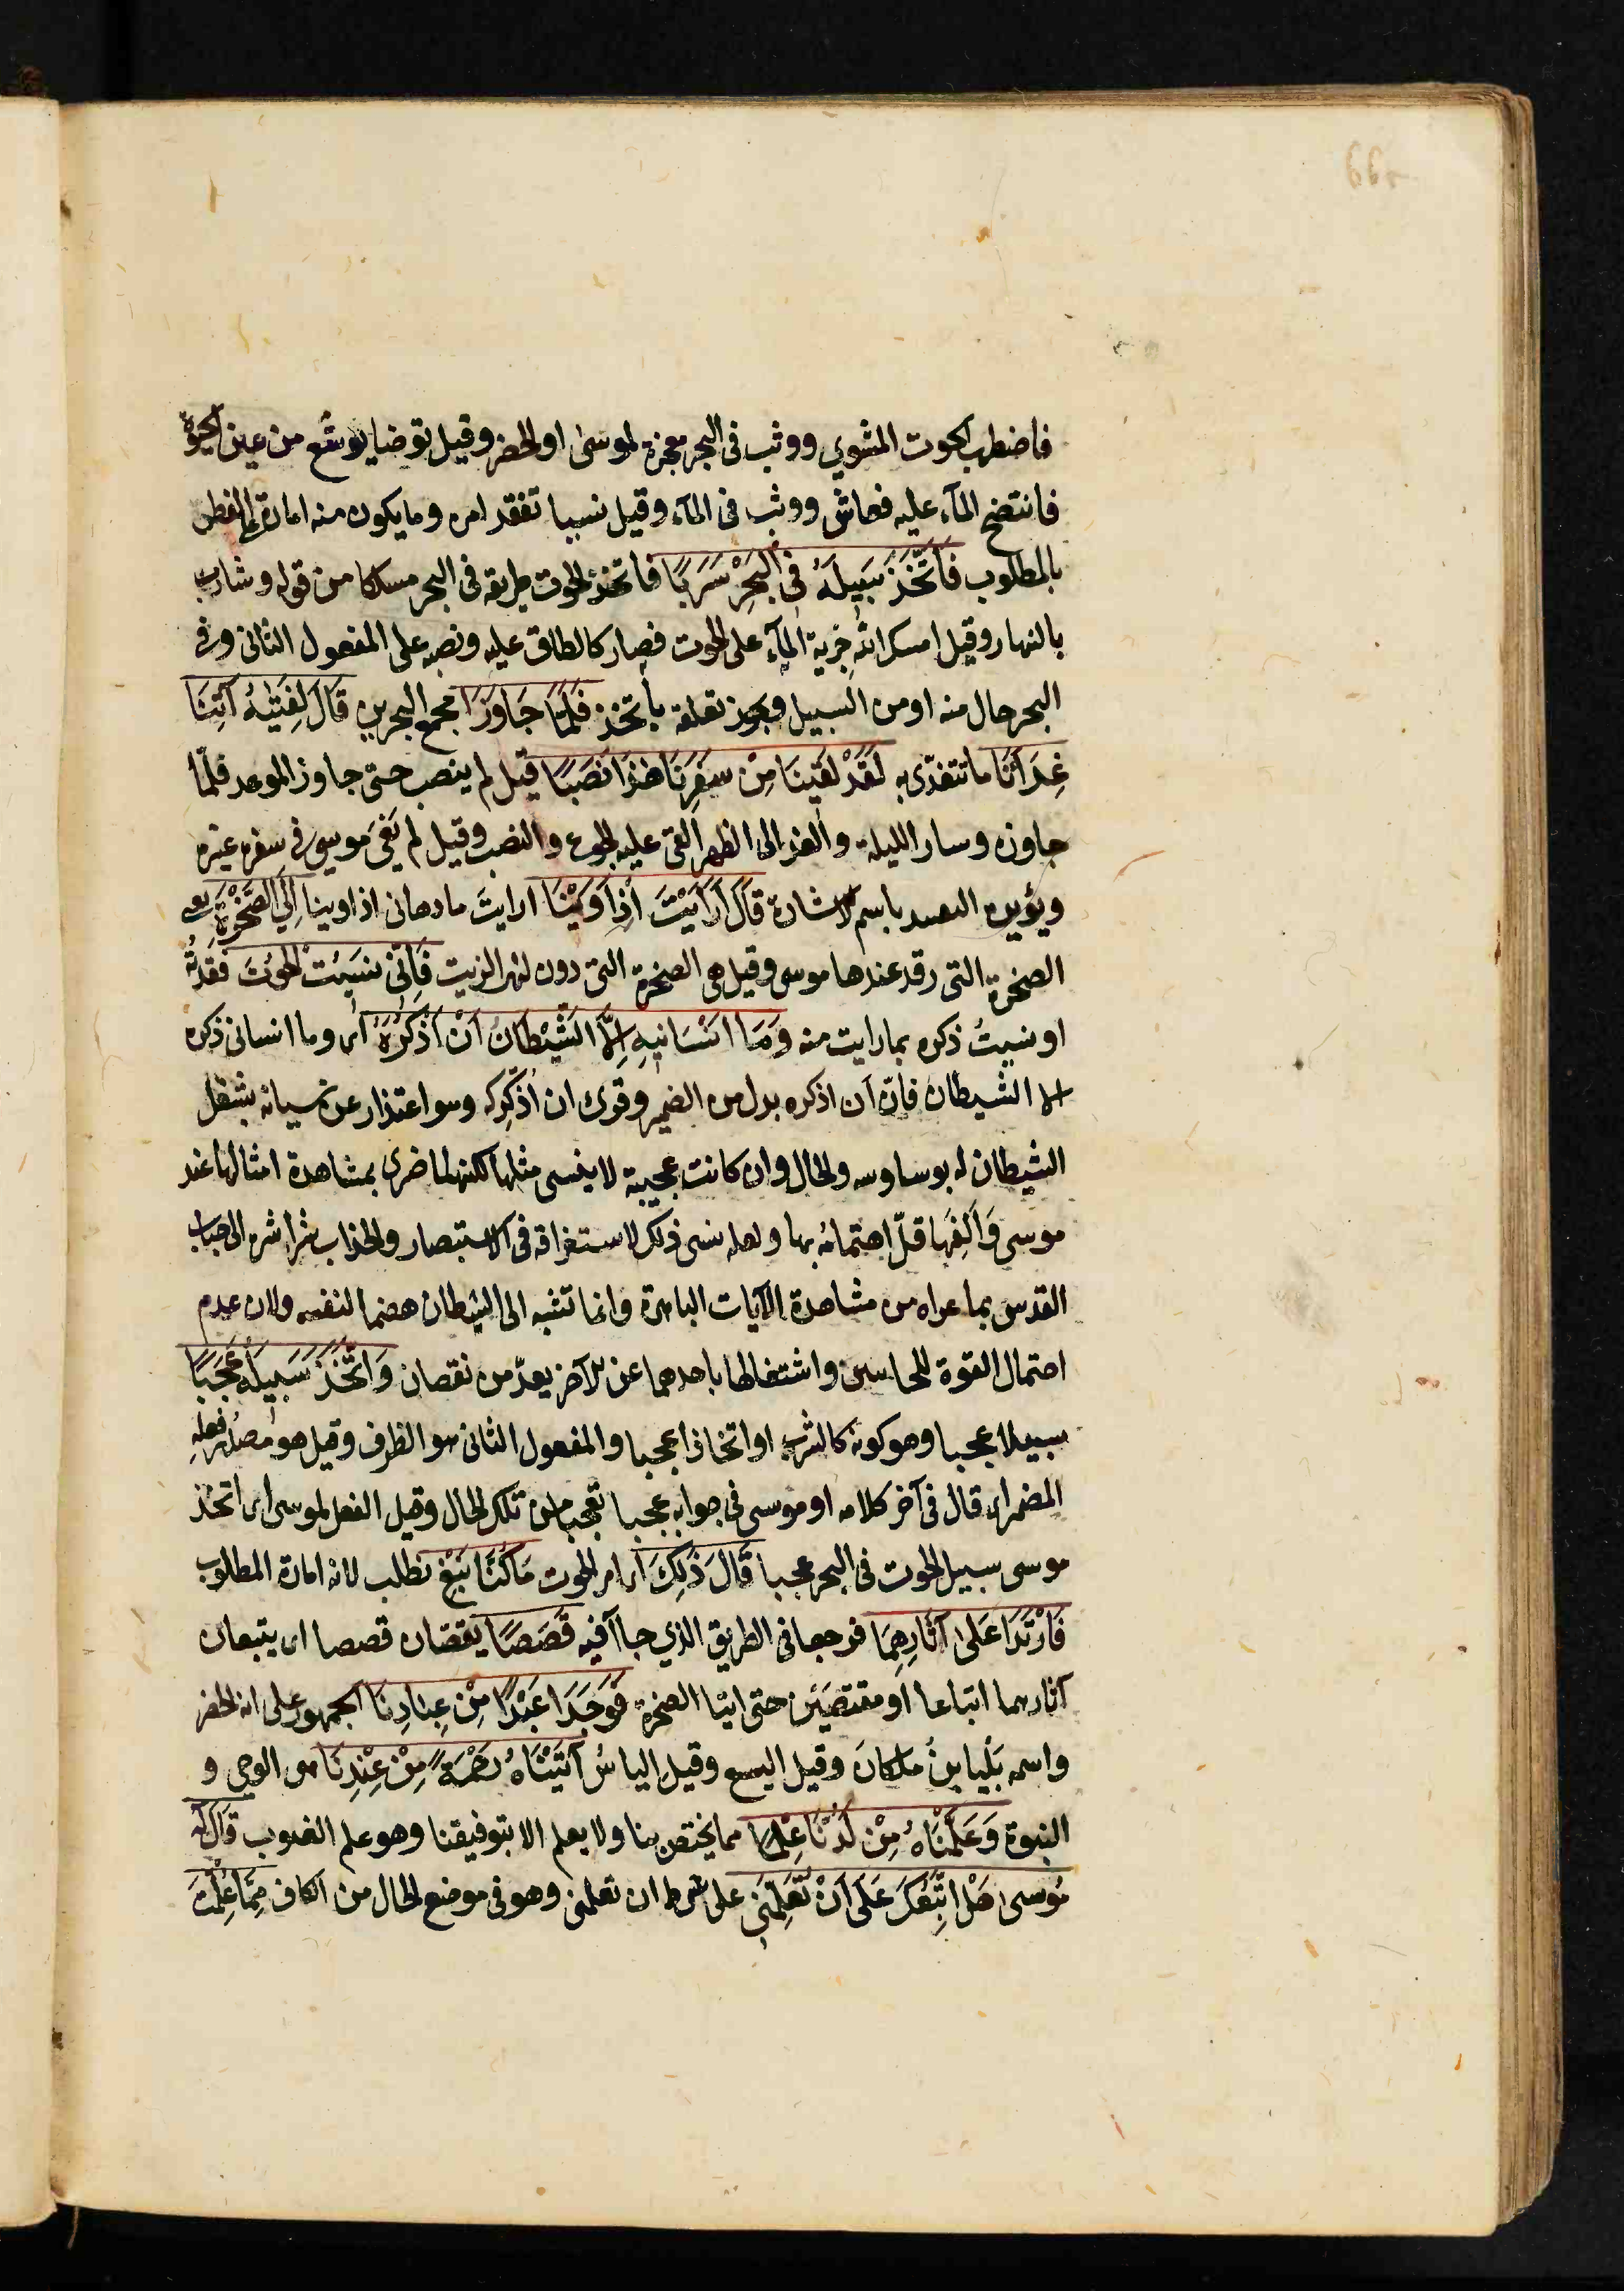 فاضطرب الحوت المشوي ووثب فى البحر معجزة لموسى او الخضر وقيل توضا يوشع من عين الحيوة
فانتضح المآء عليه فعاش ووثب فى المآء وقيل نسيا تفقد امره وما يكون منه امارة على الظفر
بالمطلوب فَاتَّخَذَ سَبِيلَهُ فِى الْبَحْرِ سَرَبًا فاتخذ الحوت طريقه فى البحر مسلكا من قوله وسارب
بالنهار وقيل امسك الله جرية المآء على الحوت فصار كالطاق عليه ونصبه على المفعول الثانى وفى
البحر حال منه او من السبيل ويجوز تعلقه باتخذ فَلَمَّا جَاوَزَا مجمع البحرين قَالَ لِفَتٰيهُ آتِنَا
غِدَآئَنَا ما نتغدّى به لَقَدْ لَقِينَا مِنْ سَفَرِنَا هٰذَا نَصَبًا قيل لم ينصب حتى جاوز الموعد فلمّا
جاوزه وسار الليلة والغد الى الظهر القى عليه الجوع والنصب وقيل لم يَعْىَ موسى فى سفر غيره
ويؤيده التقييد باسم الاشارة قَالَ اَرَاَيْتَ اِذْ اَوَيْنَا ارايتَ ما دهانى اذ اوينا اِلَى الصَّخْرَةِ يعنى
الصخرة التى رقد عندها موسى وقيل هى الصخرة التى دون نهر الزيت فَاِنِّى نَسِيتُ الْحُوتَ فقدتُه
او نسيتُ ذكره بما رايت منه وَمَا اَنْسَانِيهِ اِلَّا الشَّيْطَانُ اَنْ اَذْكُرَهُ اى وما انسانى ذكره
الا الشيطان فانّ اَن اذكره بدل من الضمير وقرئ ان اُذَكِّرَكه وهو اعتذار عن نسيانه بشغل
الشيطان له بوساوسه والحال وان كانت عجيبة لا ينسى مثلها لكنه لما ضرى بمشاهدة امثالها عند
موسى وَاَلِفَها قلّ اهتمامُه بها ولعله نسى ذلك لاستغراقه فى الاستبصار وانجذاب شراشره الى جناب
القدس بما عراه من مشاهدة الآيات الباهرة وانما نسبه الى الشيطان هضما لنفسه ولان عدم
احتمال القوة للجانبين واشتغالها باحدهما عن الآخر يعدّ من نقصان وَاتَّخَذَ سَبِيلَهُ عَجَبًا
سبيلا عجبا وهو كونه كالسرب او اتخاذا عجبا والمفعول الثانى هو الظرف وقيل هو مصدر فعله
المضمر اى قال فى آخر كلامه او موسى فى جوابه عجبا تعجبا من تلك الحال وقيل الفعل لموسى اى اتخذ
موسى سبيل الحوت فى البحر عجبا قَالَ ذٰلِكَ اى امر الحوت مَا كُنَّا نَبْغِ نطلب لانه امارة المطلوب
فَارْتَدَّا عَلٰى آثَارِهِمَا فرجعا فى الطريق الذي جاآ فيه قَصَصًا يقصّان قصصا اى يتبعان
آثارهما اتباعا او مقتصّين حتى اتيا الصخرة فَوَجَدَا عَبْدًا مِنْ عِبَادِنَا الجمهور على انه الخضر
واسمه بَلْيا بنُ ملكانَ وقيل اليسع وقيل الياسُ آتَيْنَاهُ رَحْمَةً مِنْ عِنْدِنَا هى الوحى و
النبوة وَعَلَّمْنَاهُ مِنْ لَدُنَّا عِلْمًا مما يختص بنا ولا يعلم الا بتوفيقنا وهو علم الغيوب قَالَ لَهُ
مُوسى هَلْ اَتَّبِعُكَ عَلَى اَنْ تُعَلِّمَنِ على شرط ان تعلمنى وهو فى موضع الحال من الكاف مِمَّا عُلِّمْتَ